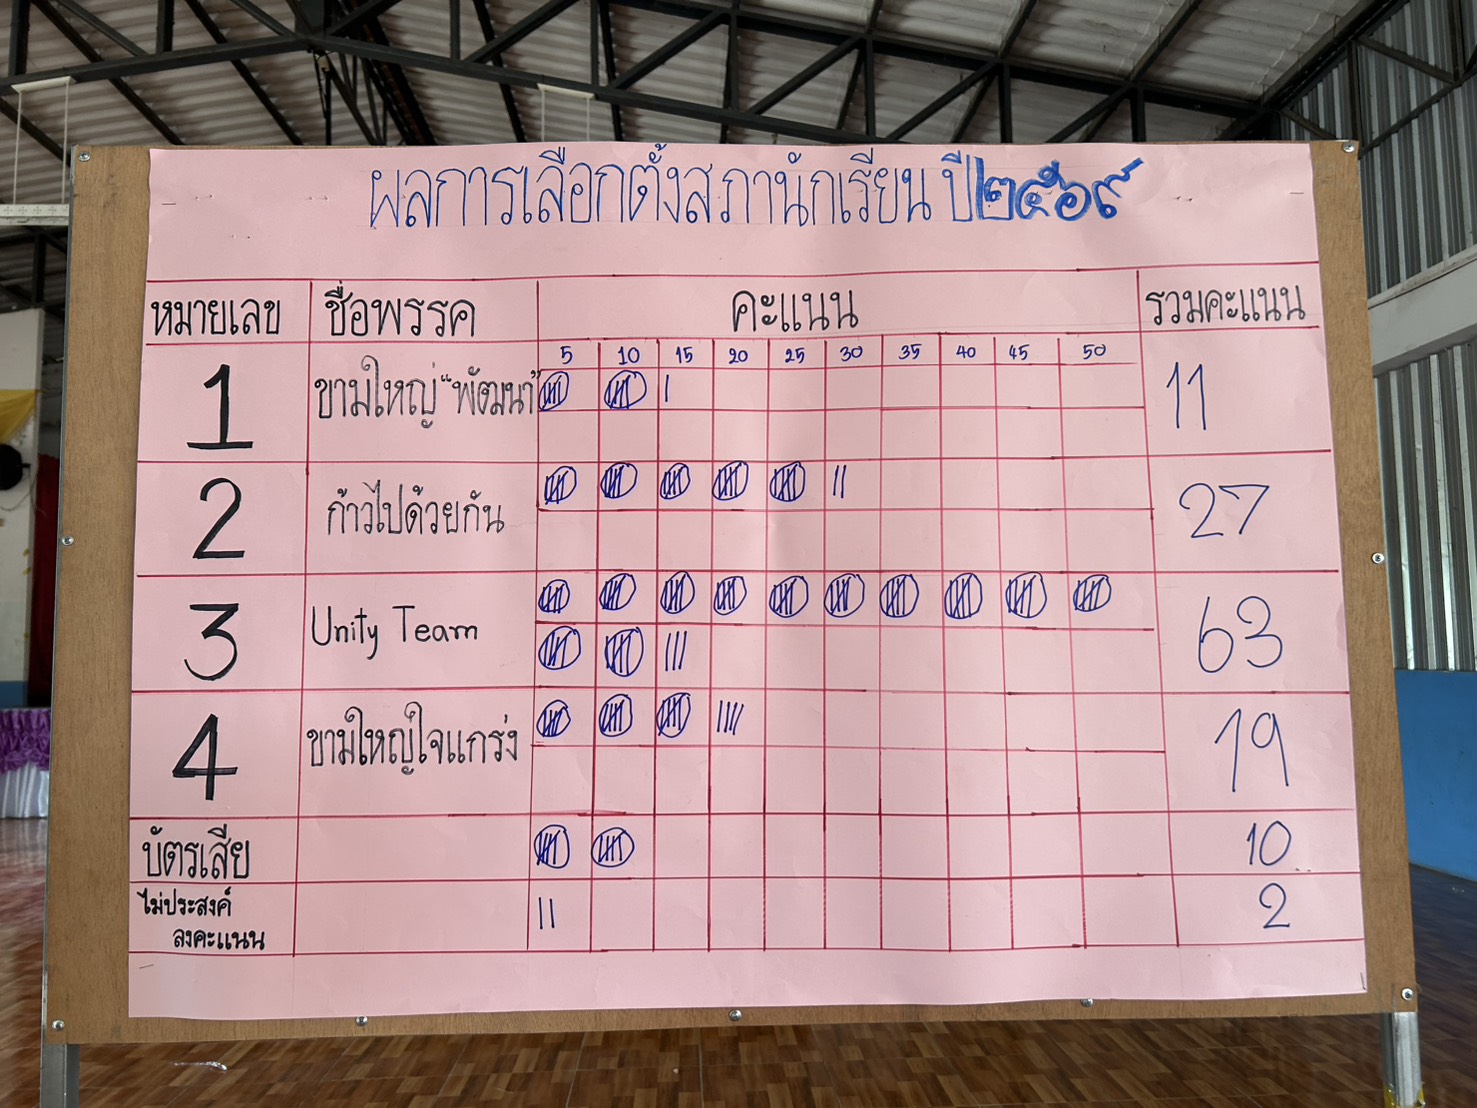 ผลการเลือกตั้งสภานักเรียน ปี๒๕๖๙
หมายเลข ชื่อพรรค คะแนน รวมคะแนน
5 10 15 20 25 30 35 40 45 50
1 ขามใหญ่ "พัฒนา" 11
2 ก้าวไปด้วยกัน 27
3 Unity Team 63
4 ขามใหญ่ใจแกร่ง 19
บัตรเสีย 10
ไม่ประสงค์ 2
ลงคะแนน